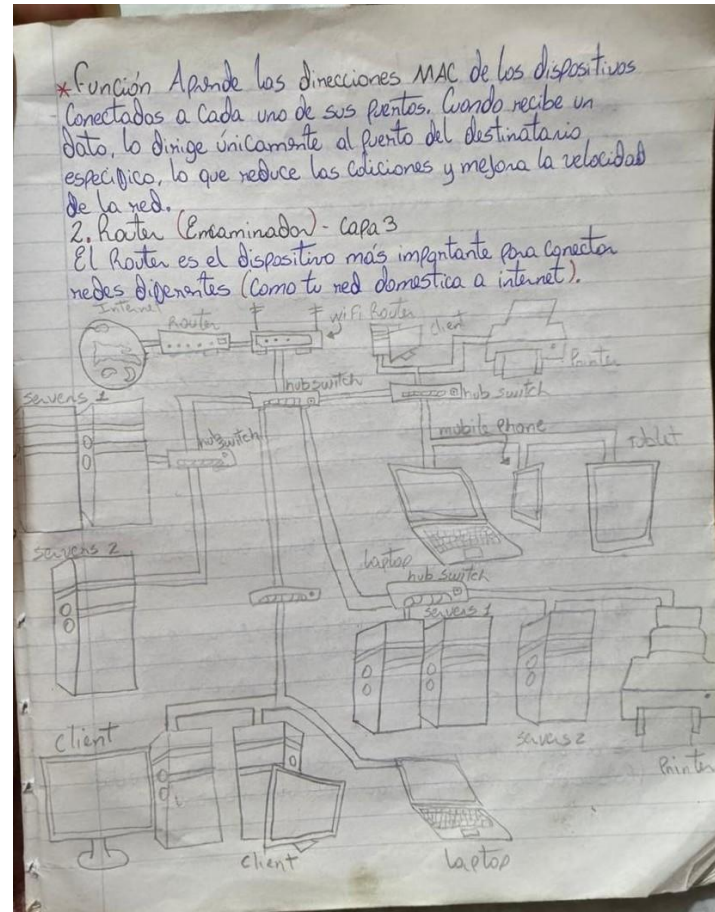 *Función Aprende las direcciones MAC de los dispositivos
Conectados a Cada uno de sus puentos. Cuando recibe un
dato, lo dirige únicamente al puento del destinatario
específico, lo que reduce las coliciones y mejora la velocidad
de la red.
2. Router (Encaminador) - Capa 3
El Router es el dispositivo más importante para conectar
redes diferentes (como tu red domestica a internet).
Internet
Router
wifi Router
client
Printer
hub switch
hub switch
servers 1
hub switch
mobile phone
Tablet
servers 2
laptop
hub switch
servers 1
servers 2
Printer
client
client
laptop